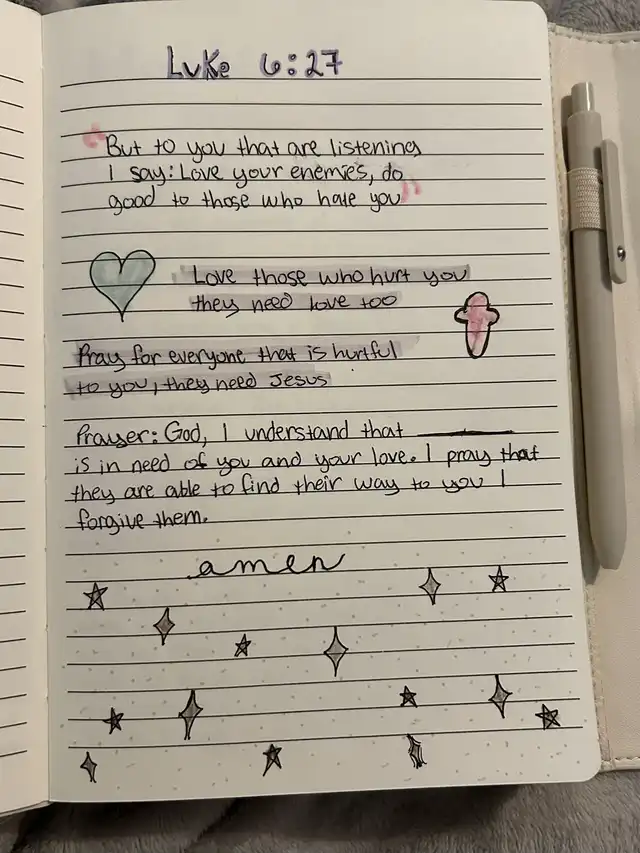 Luke 6:27
"But to you that are listening
I say: Love your enemies, do
good to those who hate you"
Love those who hurt you
they need love too
Pray for everyone that is hurtful
to you, they need Jesus
Prayer: God, I understand that ________
is in need of you and your love. I pray that
they are able to find their way to you I
forgive them.
amen